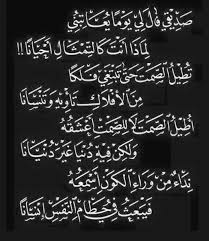 صَدِيقِي قَالَ لِي يَوْمًا يُعَاتِبُنِي
لِمَاذَا أَنْتَ كَالتِّمْثَالِ أَحْيَانًا !!
تُطِيلُ الصَّمْتَ حَتَّى تَبْتَغِي فَلَكًا
مِنَ الأَفْلَاكِ تَأْوِيهِ وَتَنْسَانَا
أُطِيلُ الصَّمْتَ لَا لِلصَّمْتِ أَعْشَقُهُ
وَلَكِنْ فِيهِ دُنْيَا غَيْرُ دُنْيَانَا
نِدَاءٌ مِنْ وَرَاءِ الكَوْنِ أَسْمَعُهُ
فَيَبْعَثُ فِي حُطَامِ النَّفْسِ إِنْسَانًا